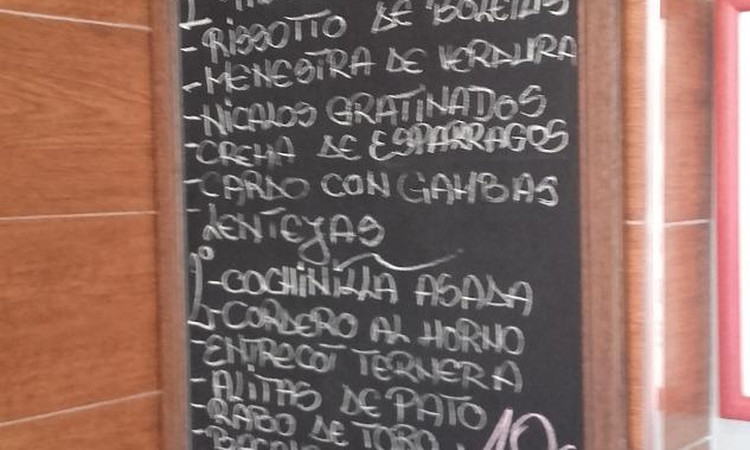 - RISSOTTO DE BOLETUS
- MENESTRA DE VERDURA
- NICALOS GRATINADOS
- CREMA DE ESPARRAGOS
- CARDO CON GAMBAS
- LENTEJAS
2º
- COCHINILLA ASADA
- CORDERO AL HORNO
- ENTRECOT TERNERA
- ALITAS DE PATO
- RABO DE TORO